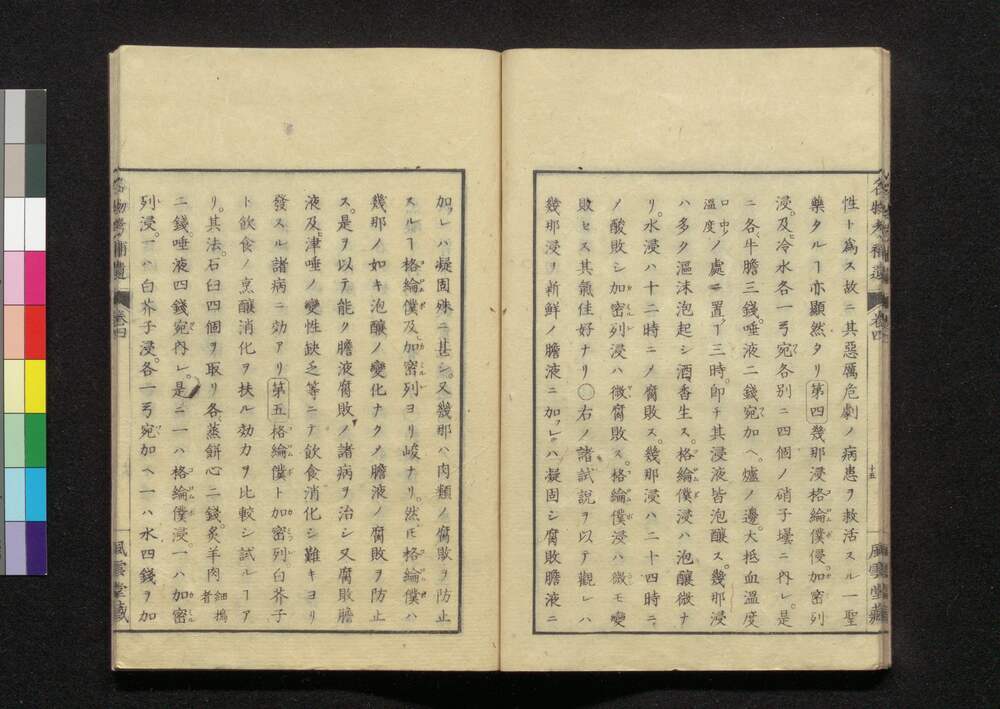 性ト為ス故ニ其惡厲危劇ノ病患ヲ救活スル一聖
藥タルヿ亦顯然タリ第四幾那浸格綸僕浸加密列
浸及冷水各一弓宛各別ニ四個ノ硝子壜ニ內レ是
ニ各牛膽三錢唾液二錢宛加ヘ爐ノ邊大抵血溫度
口中ノ溫度ノ處ニ置ヿ三時即チ其浸液皆泡釀ス幾那浸
ハ多ク漚沫泡起シ酒香生ス格綸僕浸ハ泡釀微ナ
リ水浸ハ十二時ニノ腐敗ス幾那浸ハ二十四時ニ
ノ酸敗シ加密列浸ハ微腐敗ス格綸僕浸ハ微モ變
敗セス其氣佳好ナリ○右ノ諸試說ヲ以テ觀レハ
幾那浸ヲ新鮮ノ膽液ニ加フレハ凝固シ腐敗膽液ニ
十五
名物考補遺 卷四 風雲堂藏
加フレハ凝固殊ニ甚シ又幾那ハ肉類ノ腐敗ヲ防止
スルヿ格綸僕及加密列ヨリ峻ナリ然𪜈格綸僕ハ
幾那ノ如キ泡釀ノ變化ナクノ膽液ノ腐敗ヲ防止
ス是ヲ以テ能ク膽液腐敗ノ諸病ヲ治シ又腐敗膽
液及津唾ノ變性缺乏等ニテ飲食消化シ難キヨリ
發スル諸病ニ効アリ第五格綸僕ト加密列白芥子
ト飲食ノ烹釀消化ヲ扶ル効力ヲ比較シ試ルヿア
リ其法石臼四個ヲ取リ各蒸餅心二錢炙羊肉細搗者
二錢唾液四錢宛內レ是ニ一ハ格綸僕浸一ハ加密
列浸一ハ白芥子浸各一弓宛加ヘ一ハ水四錢ヲ加
名物考補遺 卷四 風雲堂藏